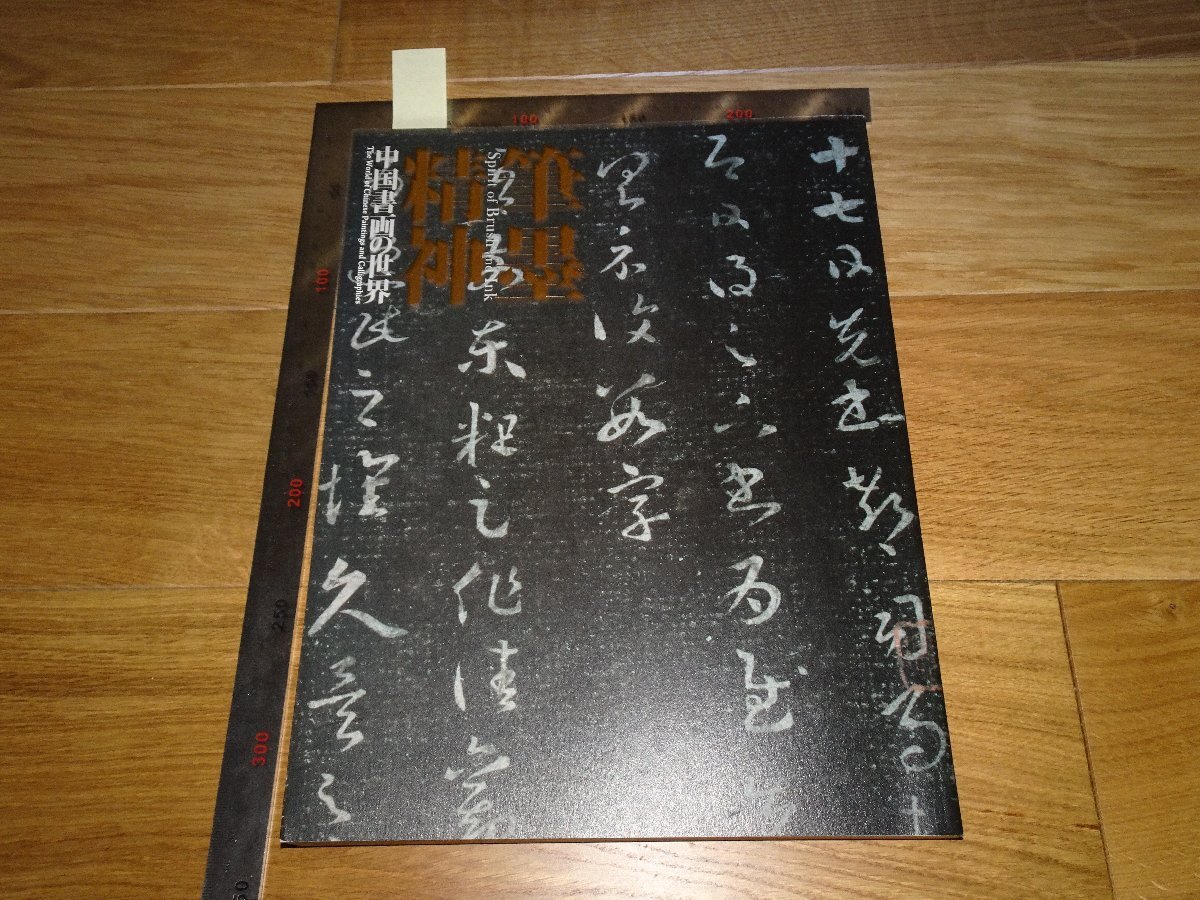 筆墨
精神
Spirit of Brush and Ink
中国書画の世界
The World of Chinese Paintings and Calligraphies
十七日先書郗司馬
即日得足下書為慰先
具示復數字
吾前東粗足作佳觀
民之懷久矣足
100
150
200
100
150
200
250
300